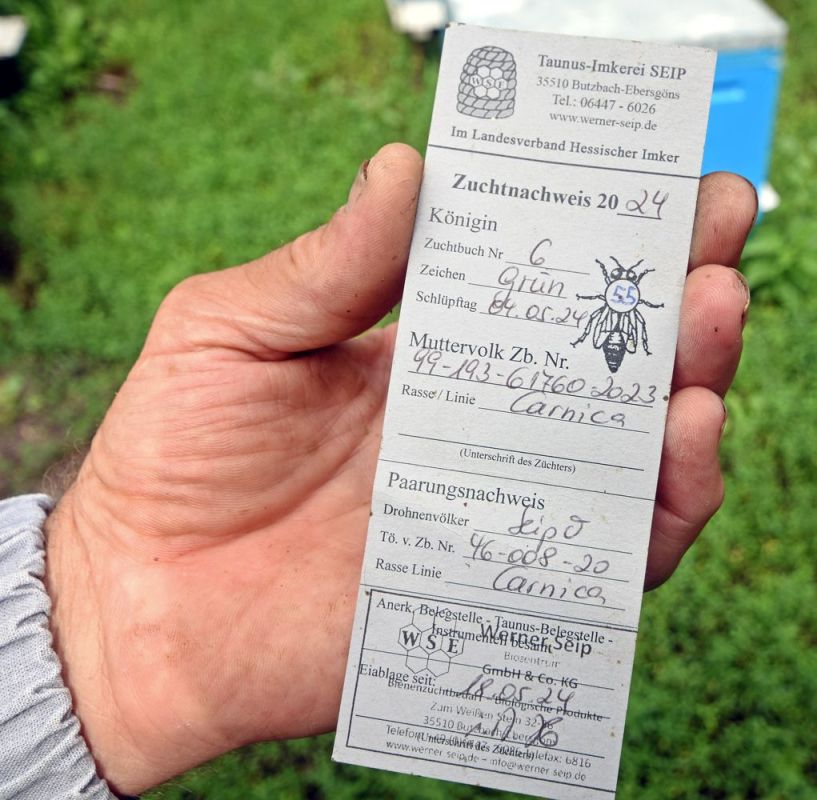 WSE
Taunus-Imkerei SEIP
35510 Butzbach-Ebersgöns
Tel.: 06447 - 6026
www.werner-seip.de
Im Landesverband Hessischer Imker
Zuchtnachweis 2024
Königin
Zuchtbuch Nr 6
Zeichen Grün
55
Schlüpftag 04.05.24
Muttervolk Zb. Nr.
99-193-61760-2023
Rasse / Linie Carnica
(Unterschrift des Züchters)
Paarungsnachweis
Drohnenvölker Seip
Tö. v. Zb. Nr. 46-008-20
Rasse Linie Carnica
Anerk. Belegstelle - Taunus-Belegstelle -
Instrumentell besamt
WSE Werner Seip
Biozentrum
GmbH & Co. KG
Eiablage seit: 18.05.24
Bienenzuchtbedarf - Biologische Produkte
Zum Weißen Stein 32-36
35510 Butzbach-Ebersgöns
(Unterschrift des Züchters)
www.werner-seip.de - info@werner-seip.de